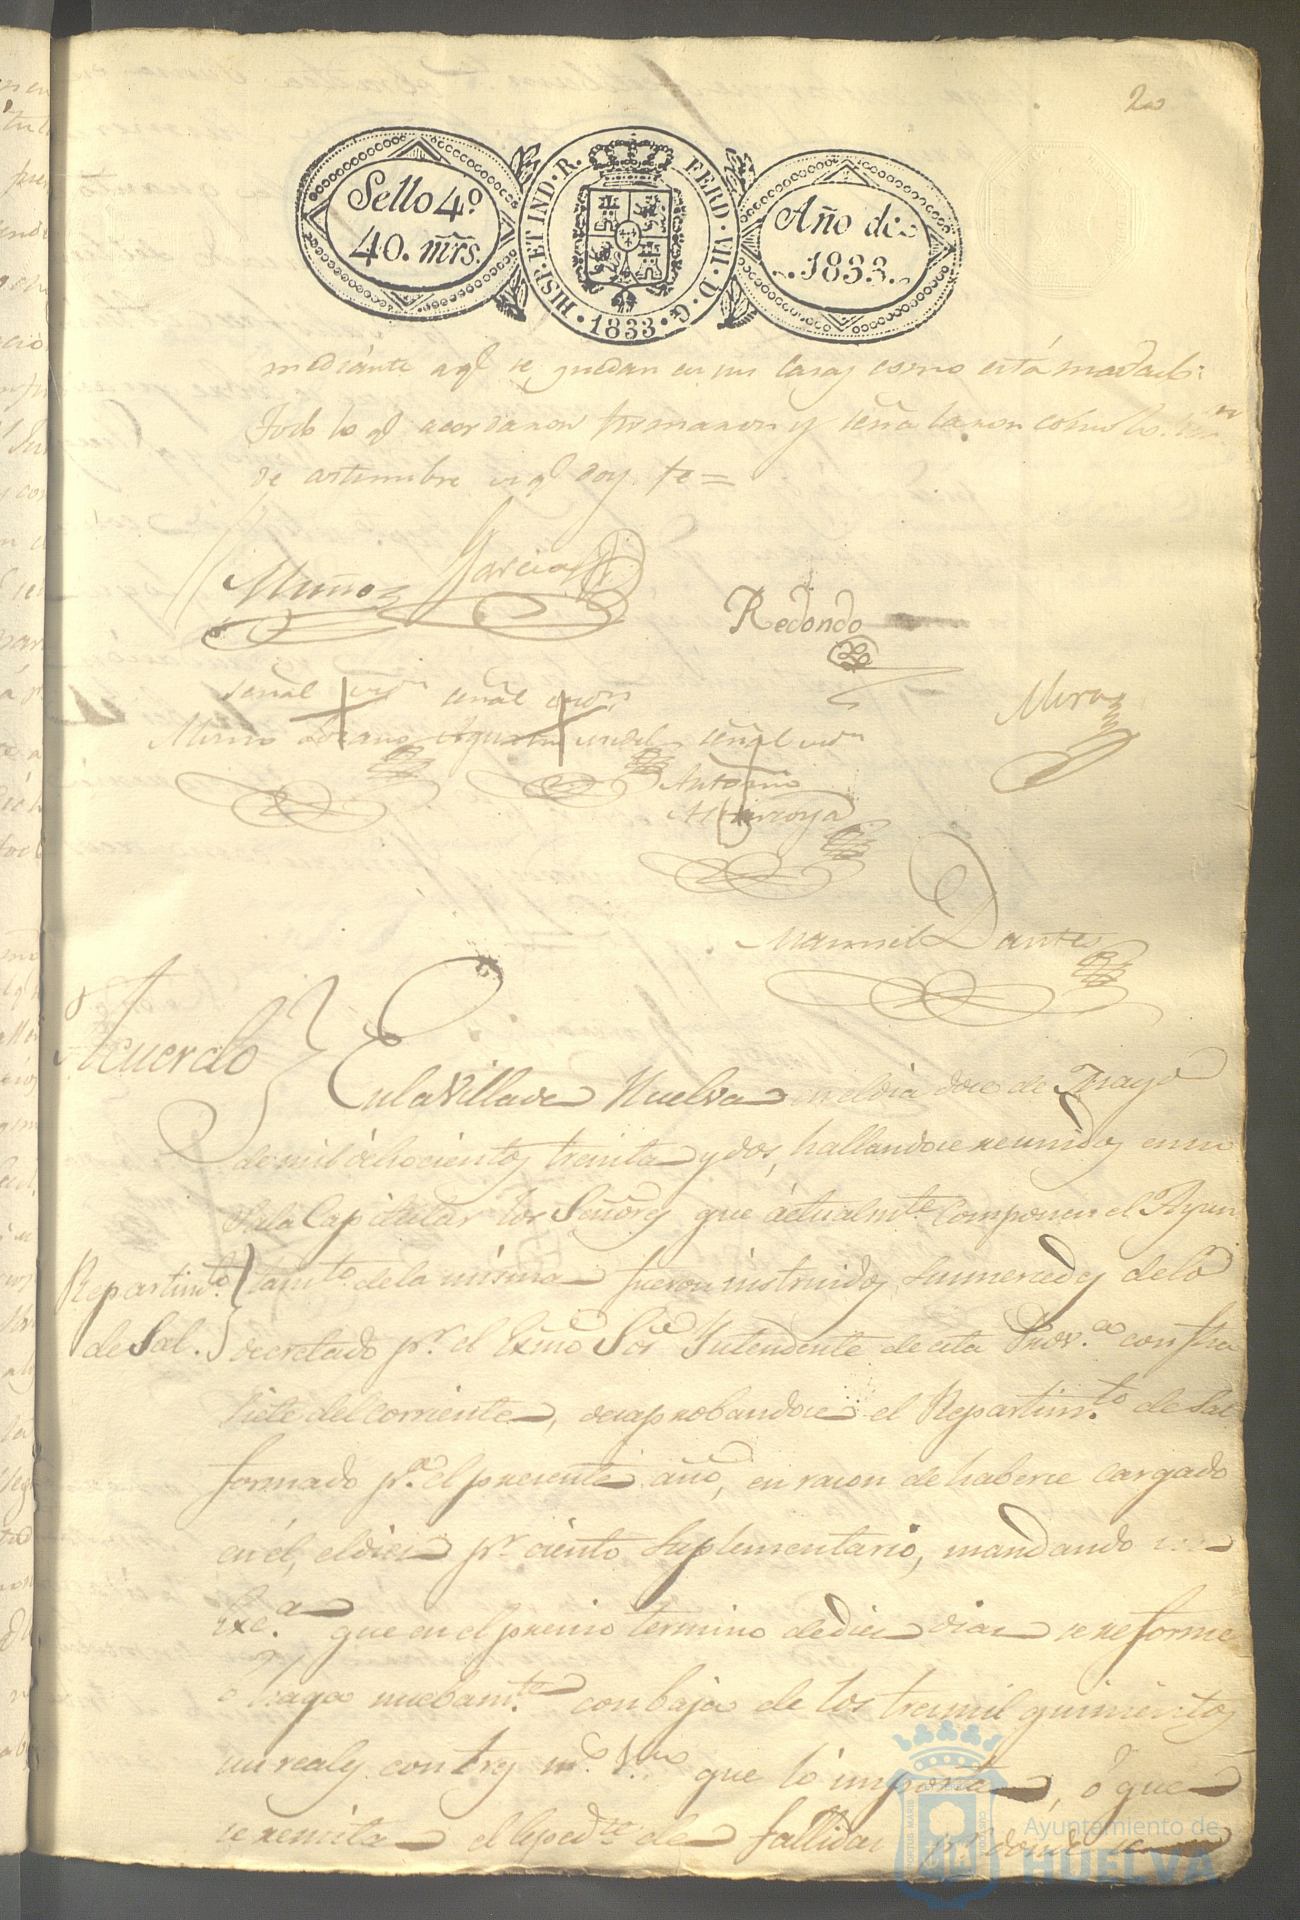 20
Sello 4º
40. mrs.
HISP. ET IND. R. FERD. VII. D. G. 1833
Año de
1833.
mediante a ql se quedan en sus casas como está
Todo lo ql acordaron firmaron y señalaron
de costumbre ql doy fe =
Muñoz Garcia
Redondo
señal señal
Mora
Lozano señal
Antonio
Manuel Dantes
Acuerdo
En la Villa de Huelva en el dia doce de Mayo
de mil ochocientos treinta y dos, hallandose reunidos en su
Sala Capitular los Señores que actualmte. componen el Ayun
Repartimto. de Sal.
tamto. de la misma fueron instruidos sus mercedes de lo
decretado pr. el Exmo Sor Yntendente de esta Prova. con fha
siete del corriente, desaprobandose el Repartimto. de Sal
formado pa. el presente año, en razon de haberse cargado
en él, el diez pr. ciento Suplementario, mandando
Exca. que en el preciso termino de diez dias se reforme
ó haga nuebamte. con baja de los tres mil quinientos
un reales con tres ms. que lo importa, ó que
se remita el Espedte. de fallidas pr. donde se
Ayuntamiento de
HUELVA